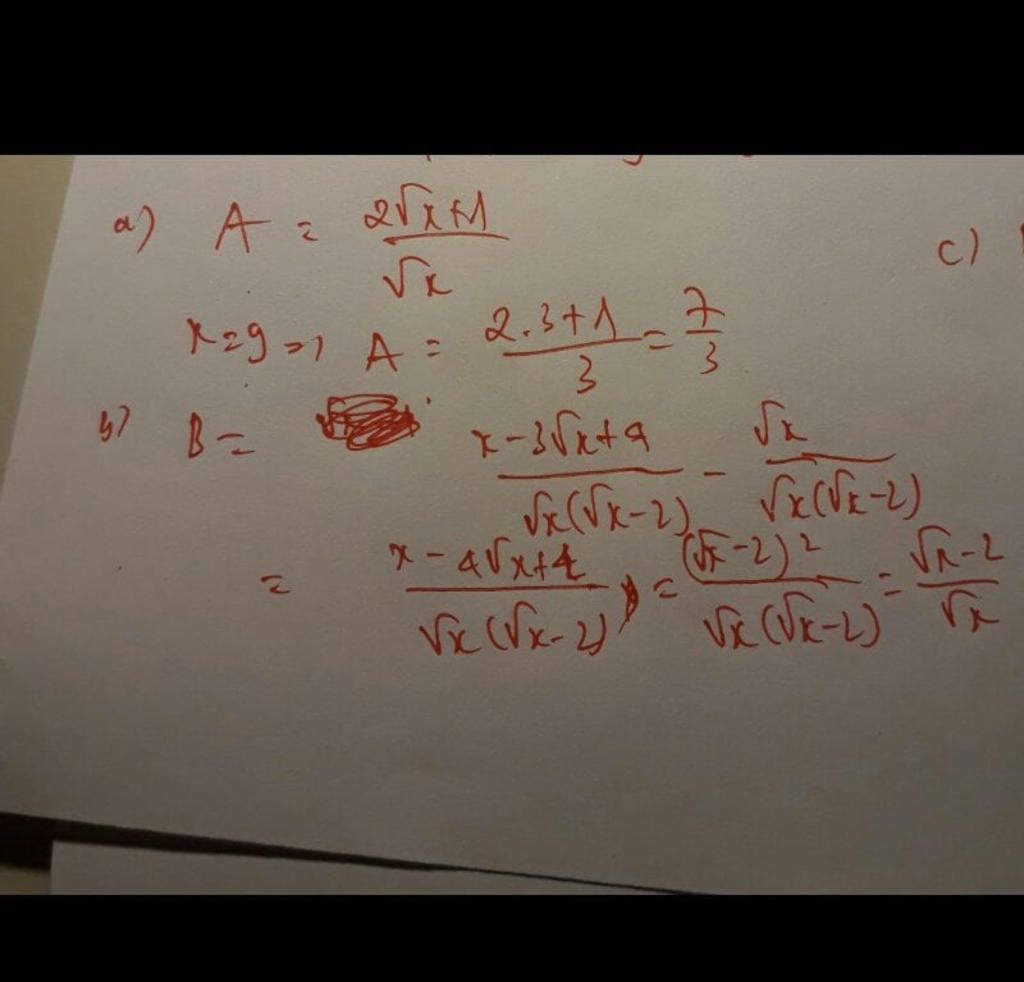 a) A = (2√x+1)/√x
c)
x=9 => A = (2.3+1)/3 = 7/3
b) B = (x-3√x+4)/(√x(√x-2)) - √x/(√x(√x-2))
= (x-4√x+4)/(√x(√x-2)) = (√x-2)²/(√x(√x-2)) = (√x-2)/√x